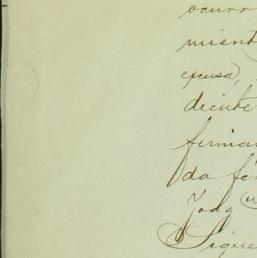 ocurr
mient
escusa,
diente
firmar
da fé
Sigue